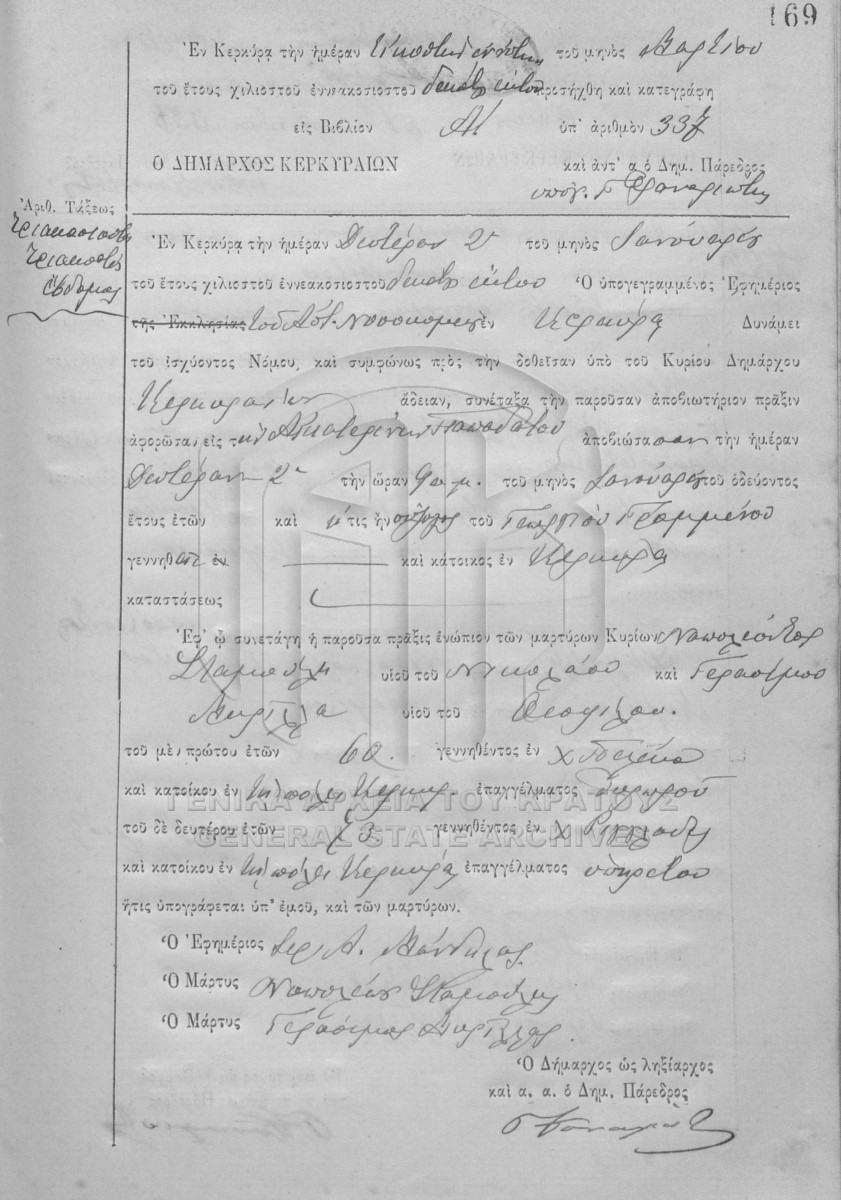 169
Ἐν Κερκύρᾳ τὴν ἡμέραν εἰκοστὴν ἐνάτην τοῦ μηνὸς Μαρτίου
τοῦ ἔτους χιλιοστοῦ ἐννεακοσιοστοῦ δεκάτου ἕκτου προσήχθη καὶ κατεγράφη
εἰς Βιβλίον ΑΙ ὑπ' ἀριθμὸν 337
Ο ΔΗΜΑΡΧΟΣ ΚΕΡΚΥΡΑΙΩΝ καὶ ἀντ' α ὁ Δημ. Πάρεδρος
ὑπογ.
Ἀριθ. Τάξεως
Τριακοσιοστὸς
τριακοστὸς
ἕβδομος
Ἐν Κερκύρᾳ τὴν ἡμέραν Δευτέραν 2 τοῦ μηνὸς Ἰανουαρίου
τοῦ ἔτους χιλιοστοῦ ἐννεακοσιοστοῦ δεκάτου ἕκτου Ὁ ὑπογεγραμμένος Ἐφημέριος
τῆς Ἐκκλησίας τοῦ Νοσοκομείου ἐν Κερκύρᾳ Δυνάμει
τοῦ ἰσχύοντος Νόμου, καὶ συμφώνως πρὸς τὴν δοθεῖσαν ὑπὸ τοῦ Κυρίου Δημάρχου
Κερκυραίων ἄδειαν, συνέταξα τὴν παροῦσαν ἀποβιωτήριον πρᾶξιν
ἀφορῶσαν εἰς τὴν Αἰκατερίνην Παπαδάτου ἀποβιώσασαν τὴν ἡμέραν
Δευτέραν 2 τὴν ὥραν 9 π.μ. τοῦ μηνὸς Ἰανουαρίου τοῦ ὁδεύοντος
ἔτους ἐτῶν καὶ ἥτις ἦν σύζυγος τοῦ Γεωργίου Γραμμένου
γεννηθ ἐν καὶ κάτοικος ἐν Κερκύρᾳ
καταστάσεως
Ἐφ' ᾧ συνετάγη ἡ παροῦσα πρᾶξις ἐνώπιον τῶν μαρτύρων Κυρίων Ναπολέοντος
Σταμούλη υἱοῦ τοῦ Νικολάου καὶ Γερασίμου
υἱοῦ τοῦ Θεοφίλου.
τοῦ μὲν πρώτου ἐτῶν 60. γεννηθέντος ἐν χ
καὶ κατοίκου ἐν τῇ πόλει Κερκύρ. ἐπαγγέλματος θυρωροῦ
τοῦ δὲ δευτέρου ἐτῶν γεννηθέντος ἐν χ
καὶ κατοίκου ἐν τῇ πόλει Κερκύρᾳ ἐπαγγέλματος ὑπηρέτου
ἥτις ὑπογράφεται ὑπ' ἐμοῦ, καὶ τῶν μαρτύρων.
Ὁ Ἐφημέριος Ἱερ. Α.
Ὁ Μάρτυς Ναπολέων Σταμούλης
Ὁ Μάρτυς Γεράσιμος
Ὁ Δήμαρχος ὡς ληξίαρχος
καὶ α. α. ὁ Δημ. Πάρεδρος
ΓΕΝΙΚΑ ΑΡΧΕΙΑ ΤΟΥ ΚΡΑΤΟΥΣ
GENERAL STATE ARCHIVES